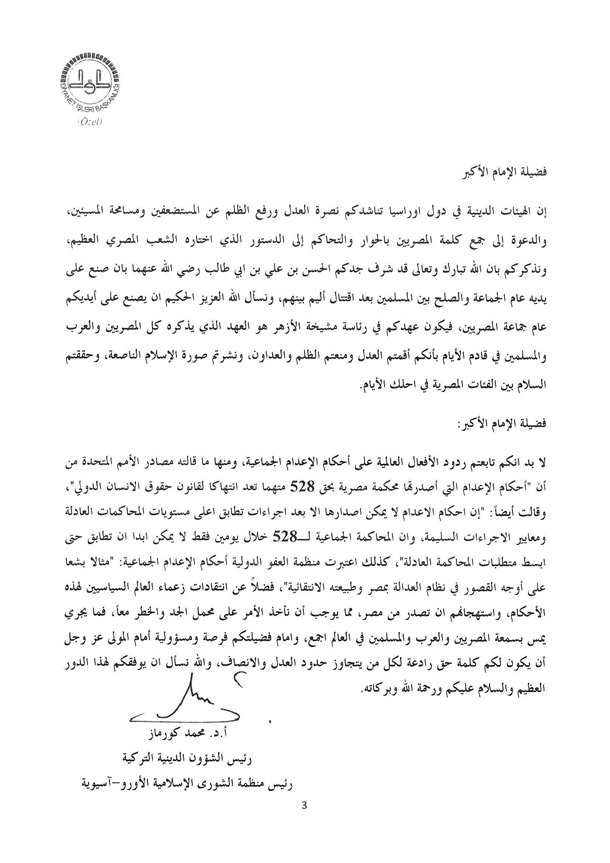 DİYANET İŞLERİ BAŞKANLIĞI
(Özel)
فضيلة الإمام الأكبر
إن الهيئات الدينية في دول اوراسيا تناشدكم نصرة العدل ورفع الظلم عن المستضعفين ومسامحة المسيئين،
والدعوة إلى جمع كلمة المصريين بالحوار والتحاكم إلى الدستور الذي اختاره الشعب المصري العظيم،
ونذكركم بان الله تبارك وتعالى قد شرف جدكم الحسن بن علي بن ابي طالب رضي الله عنهما بان صنع على
يديه عام الجماعة والصلح بين المسلمين بعد اقتتال أليم بينهم، ونسأل الله العزيز الحكيم ان يصنع على أيديكم
عام جماعة المصريين، فيكون عهدكم في رئاسة مشيخة الأزهر هو العهد الذي يذكره كل المصريين والعرب
والمسلمين في قادم الأيام بأنكم أقمتم العدل ومنعتم الظلم والعداون، ونشرتم صورة الإسلام الناصعة، وحققتم
السلام بين الفئات المصرية في احلك الأيام.
فضيلة الإمام الأكبر:
لا بد انكم تابعتم ردود الأفعال العالمية على أحكام الإعدام الجماعية، ومنها ما قالته مصادر الأمم المتحدة من
أن "أحكام الإعدام التي أصدرتها محكمة مصرية بحق 528 متهما تعد انتهاكا لقانون حقوق الانسان الدولي"،
وقالت أيضاً: "إن احكام الاعدام لا يمكن اصدارها الا بعد اجراءات تطابق اعلى مستويات المحاكمات العادلة
ومعايير الاجراءات السليمة، وان المحاكمة الجماعية لـــ528 خلال يومين فقط لا يمكن ابدا ان تطابق حتى
ابسط متطلبات المحاكمة العادلة"، كذلك اعتبرت منظمة العفو الدولية أحكام الإعدام الجماعية: "مثالا بشعا
على أوجه القصور في نظام العدالة بمصر وطبيعته الانتقائية"، فضلاً عن انتقادات زعماء العالم السياسيين لهذه
الأحكام، واستهجالهم ان تصدر من مصر، مما يوجب أن نأخذ الأمر على محمل الجد والخطر معاً، فما يجري
يمس بسمعة المصريين والعرب والمسلمين في العالم اجمع، وامام فضيلتكم فرصة ومسؤولية أمام المولى عز وجل
أن يكون لكم كلمة حق رادعة لكل من يتجاوز حدود العدل والانصاف، والله نسأل ان يوفقكم لهذا الدور
العظيم والسلام عليكم ورحمة الله وبركاته.
أ.د. محمد كورماز
رئيس الشؤون الدينية التركية
رئيس منظمة الشورى الإسلامية الأورو–آسيوية
3